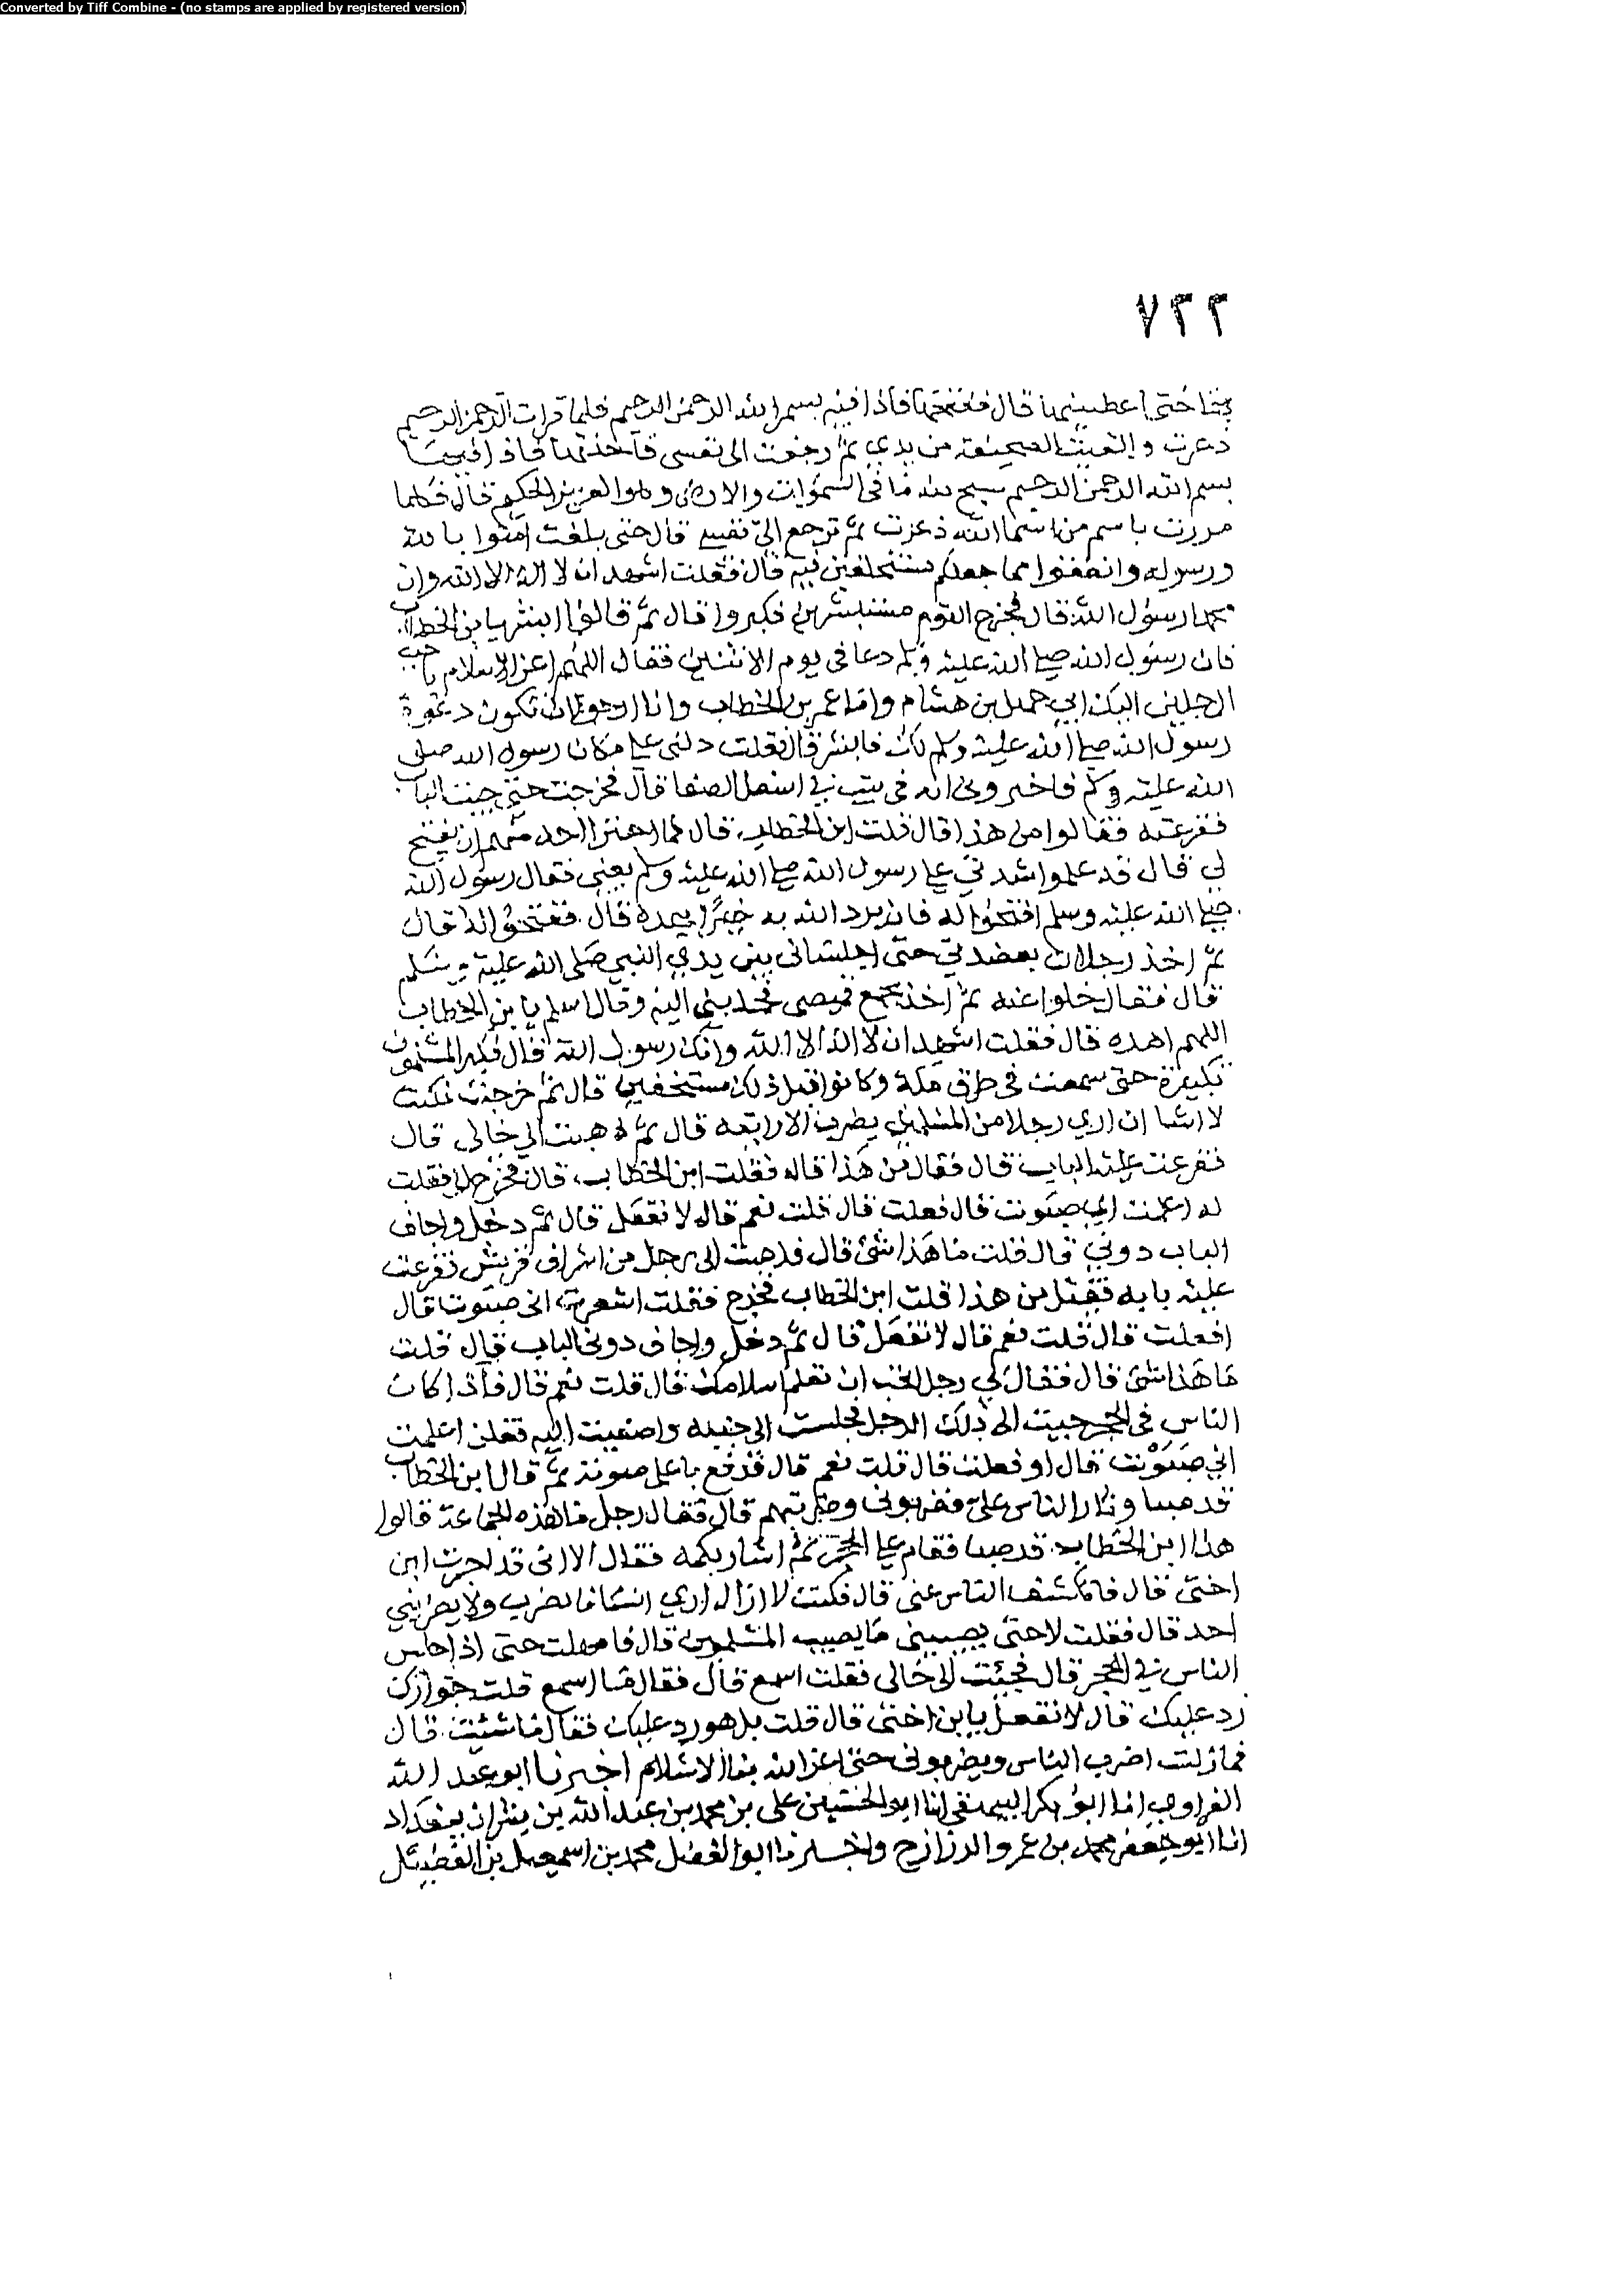 Converted by Tiff Combine - (no stamps are applied by registered version)
٧٢٢
بها حتى اعطيتنيها قال ففتحتها فاذا فيه بسم الله الرحمن الرحيم فلما قرات الرحمن الرحيم
ذعرت والقيت الصحيفة من يدي ثم رجعت الى نفسي فاخذتها فاذا فيها
بسم الله الرحمن الرحيم سبح لله ما في السموات والارض وهو العزيز الحكيم قال فكلما
مررت باسم من اسما الله ذعرت ثم ترجع الي نفسي قال حتى بلغت امنوا بالله
ورسوله وانفقوا مما جعلكم مستخلفين فيه قال فقلت اشهد ان لا اله الا الله وان
محمدا رسول الله قال فخرج القوم مستبشرين فكبروا قال ثم قالوا ابشر يا بن الخطاب
فان رسول الله صلى الله عليه وسلم دعا في يوم الاثنين فقال اللهم اعز الاسلام باحب
الرجلين اليك ابي جهل بن هشام واما عمر بن الخطاب وانا نرجوا ان تكون دعوة
رسول الله صلى الله عليه وسلم لك فابشر قال فقلت دلني على مكان رسول الله صلى
الله عليه وسلم فاخبروني انه في بيت في اسفل الصفا قال فخرجت حتى جيت الباب
فقرعته فقالوا من هذا قال قلت ابن الخطاب قال فما اجترا احد منهم ان يفتح
لي قال قد علموا شدتي على رسول الله صلى الله عليه وسلم يعني فقال رسول الله
صلى الله عليه وسلم افتحوا له فان يرد الله به خيرا يهده قال ففتحوا له قال
ثم اخذ رجلان بعضدي حتى اجلساني بين يدي النبي صلى الله عليه وسلم
قال فقال خلوا عنه ثم اخذ بجمع قميصي فجذبني اليه وقال اسلم يا بن الخطاب
اللهم اهده قال فقلت اشهد ان لا اله الا الله وانك رسول الله قال فكبر المسلمون
تكبيرة حتى سمعت في طرق مكة وكانوا قبل ذلك مستخفين قال ثم خرجت فكنت
لا اشا ان اري رجلا من المسلمين يضرب الا رايته قال ثم ذهبت الى خالي قال
فقرعت عليه الباب قال فقال من هذا قال فقلت ابن الخطاب قال فخرج الي فقلت
له اعلمت اني صبوت قال فعلت قال قلت نعم قال لا تفعل قال ثم دخل واجاف
الباب دوني قال قلت ما هذا شئ قال فذهبت الى رجل من اشراف قريش فقرعت
عليه بابه فقيل من هذا قلت ابن الخطاب فخرج فقلت اشعرت اني صبوت قال
افعلت قال قلت نعم قال لا تفعل قال ثم دخل واجاف دوني الباب قال قلت
ما هذا شئ قال فقال لي رجل اتحب ان تعلم اسلامك قال قلت نعم قال فاذا كان
الناس في الحجر جيت الى ذلك الرجل فجلست الى جنبه واصغيت اليه فقلت اعلمت
اني صبوت قال او فعلت قال قلت نعم قال فرفع باعلى صوته ثم قال ابن الخطاب
قد صبا وثار الناس علي فضربوني وضربتهم قال فقال رجل ما هذه الجماعة قالوا
هذا ابن الخطاب قد صبا فقام على الحجر ثم اشار بكمه فقال الا اني قد اجرت ابن
اختي قال فانكشف الناس عني قال فكنت لا ازال اري انسانا يضرب ولا يضربني
احد قال فقلت لا حتى يصيبني ما يصيب المسلمين قال فامهلت حتى اذا جلس
الناس في الحجر قال فجئت الى خالي فقلت اسمع قال فقال ما اسمع قلت جوارك
رد عليك قال لا تفعل يا بن اختي قال قلت بل هو رد عليك فقال ما شئت قال
فما زلت اضرب الناس ويضربوني حتى اعز الله بنا الاسلام اخبرنا ابو عبد الله
الفراوي انا ابو بكر البيهقي انا ابو الحسين علي بن محمد بن عبد الله بن بشران ببغداد
انا ابو جعفر محمد بن عمرو الرزاز ح واخبرنا ابو الفضل محمد بن اسمعيل بن الفضيل